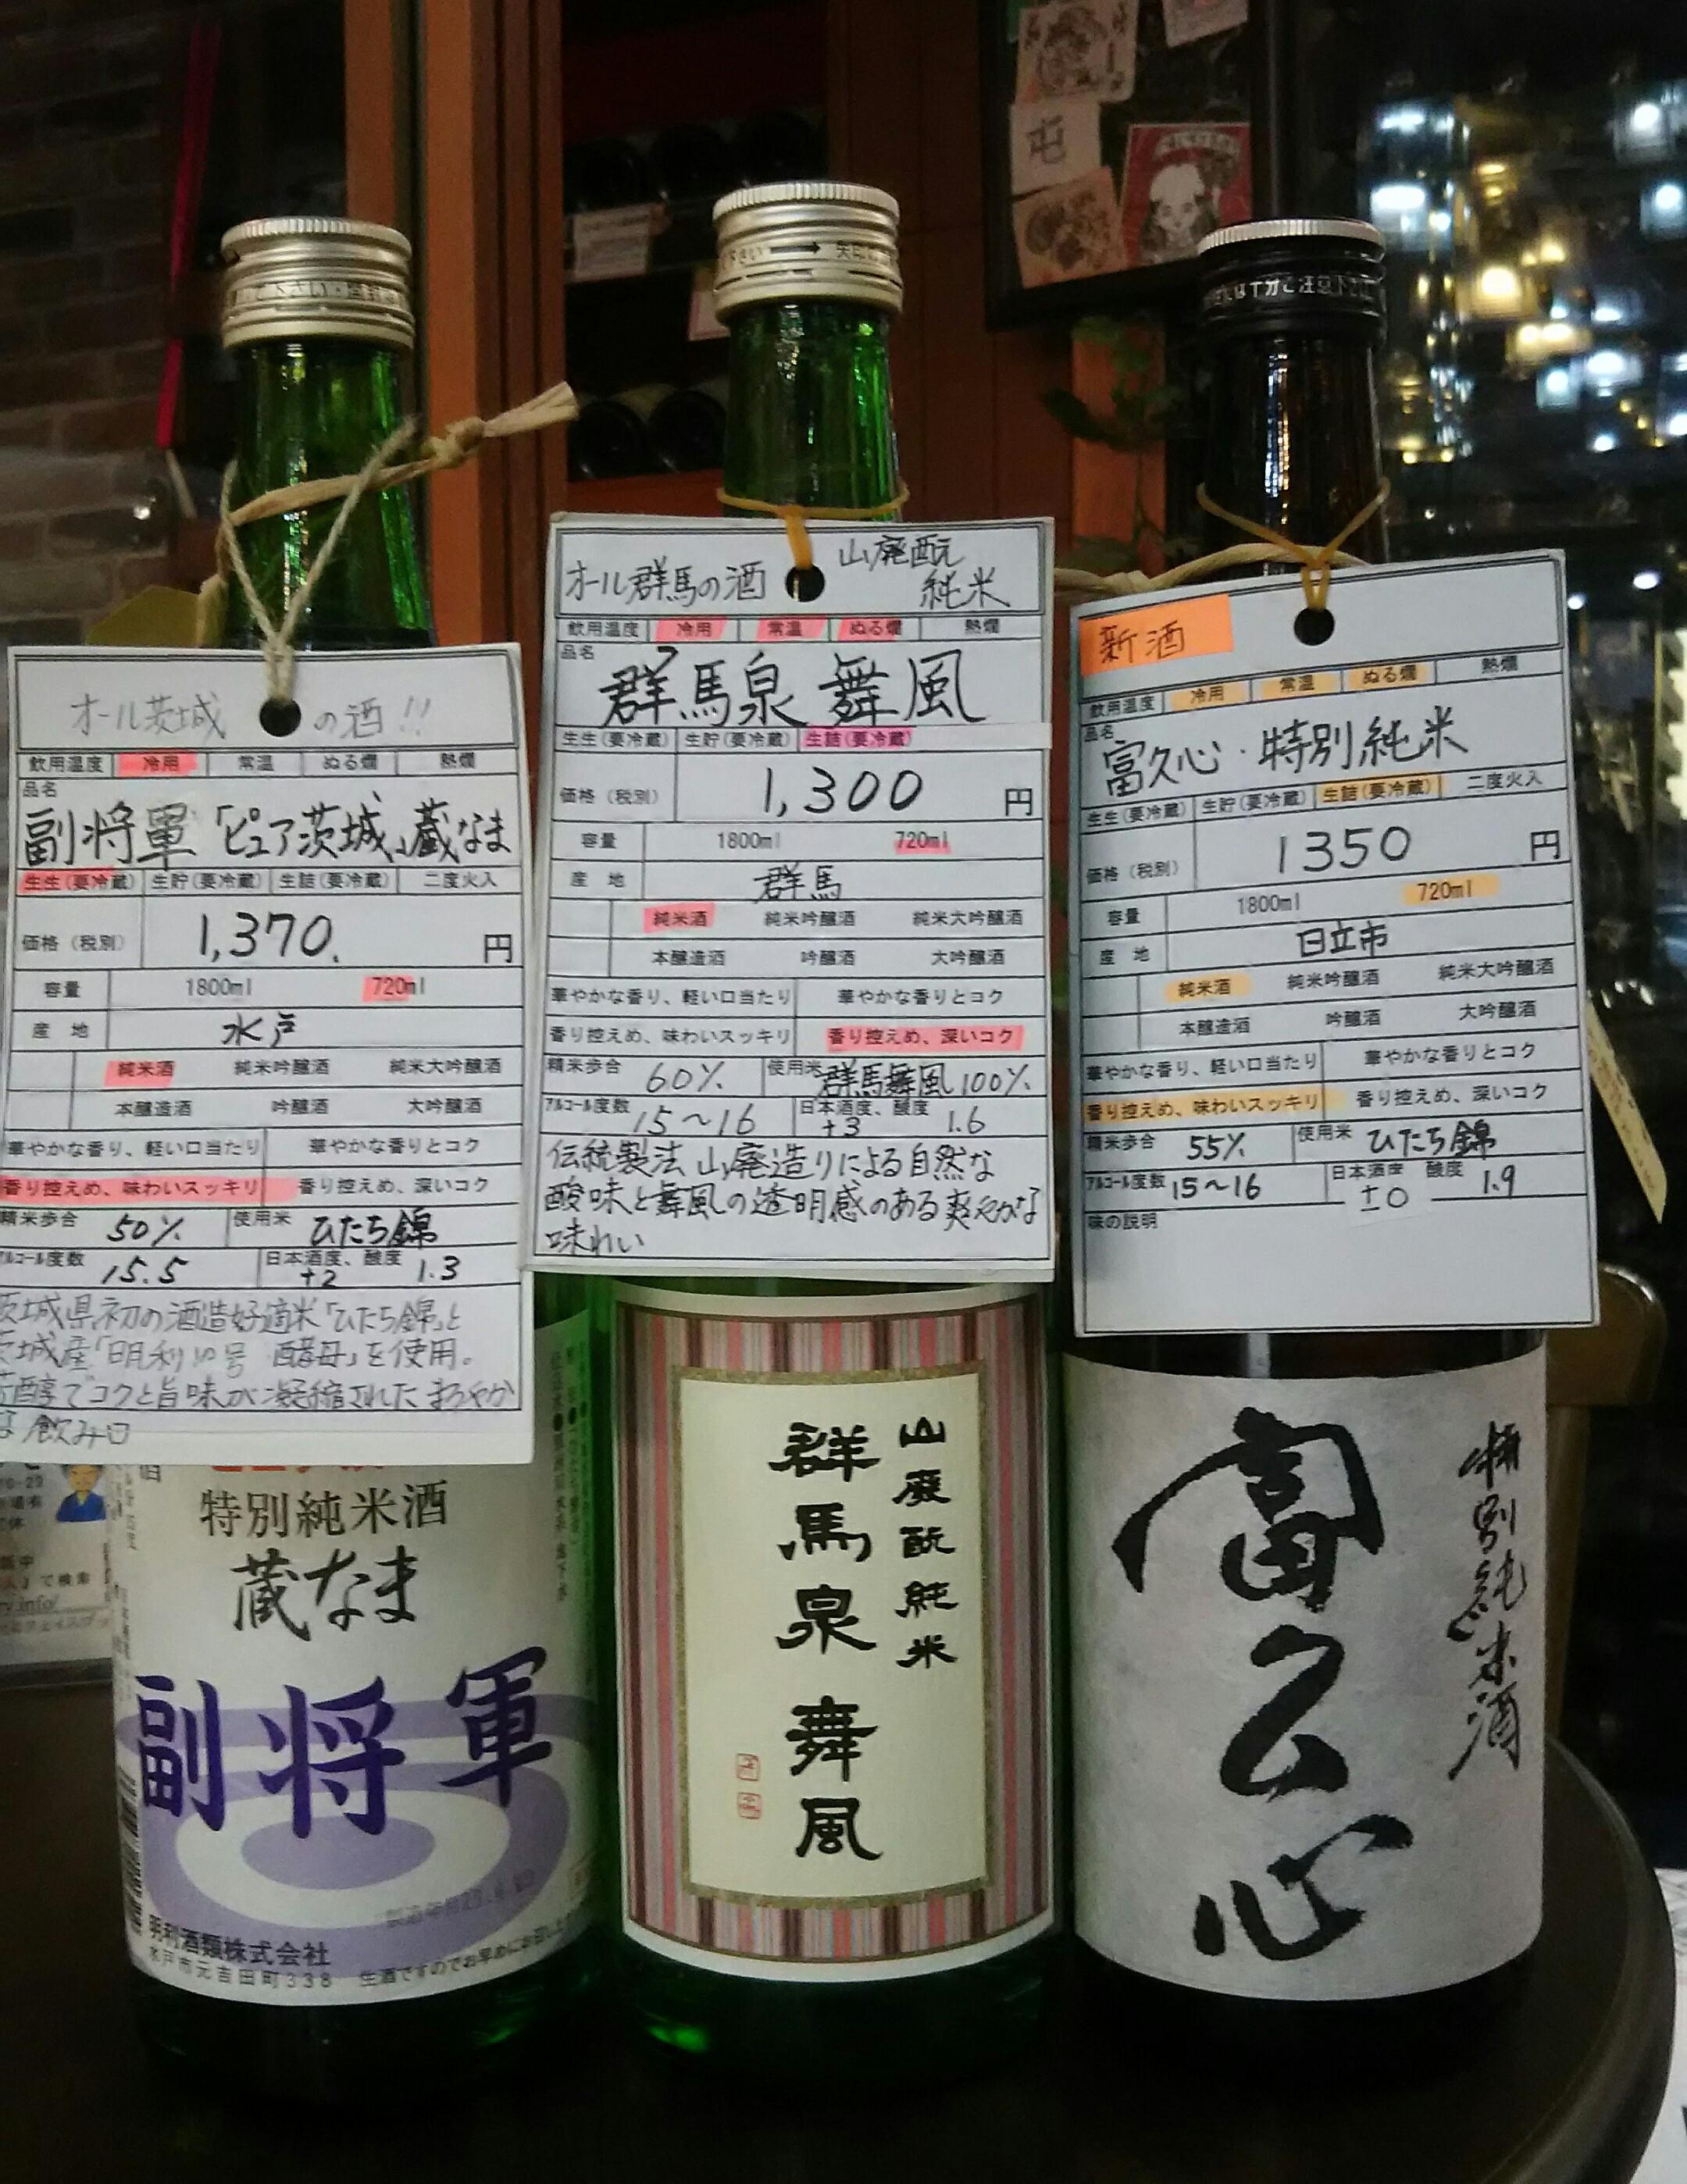 オール茨城の酒!!
飲用温度 冷用 常温 ぬる燗 熱燗
品名
副将軍「ピュア茨城」蔵なま
生生(要冷蔵) 生貯(要冷蔵) 生詰(要冷蔵) 二度火入
価格(税別) 1,370. 円
容量 1800ml 720ml
産 地 水戸
純米酒 純米吟醸酒 純米大吟醸酒
本醸造酒 吟醸酒 大吟醸酒
華やかな香り、軽い口当たり 華やかな香りとコク
香り控えめ、味わいスッキリ 香り控えめ、深いコク
精米歩合 50% 使用米 ひたち錦
アルコール度数 15.5 日本酒度、酸度 +2 1.3
茨城県初の酒造好適米「ひたち錦」と
茨城産「明利10号 酵母」を使用。
醇でコクと旨味が凝縮されたまろやか
な飲み口
特別純米酒
蔵なま
副将軍
明利酒類株式会社
水戸市元吉田町338
生酒ですのでお早めにお召し
オール群馬の酒 山廃酛
純米
飲用温度 冷用 常温 ぬる燗 熱燗
品名
群馬泉 舞風
生生(要冷蔵) 生貯(要冷蔵) 生詰(要冷蔵)
価格(税別) 1,300 円
容量 1800ml 720ml
産 地 群馬
純米酒 純米吟醸酒 純米大吟醸酒
本醸造酒 吟醸酒 大吟醸酒
華やかな香り、軽い口当たり 華やかな香りとコク
香り控えめ、味わいスッキリ 香り控えめ、深いコク
精米歩合 60% 使用米 群馬舞風100%
アルコール度数 15~16 日本酒度、酸度 +3 1.6
伝統製法山廃造りによる自然な
酸味と舞風の透明感のある爽やかな
味わい
山廃酛純米
群馬泉 舞風
新酒
飲用温度 冷用 常温 ぬる燗 熱燗
品名
富久心・特別純米
生生(要冷蔵) 生貯(要冷蔵) 生詰(要冷蔵) 二度火入
価格(税別) 1350 円
容量 1800ml 720ml
産 地 日立市
純米酒 純米吟醸酒 純米大吟醸酒
本醸造酒 吟醸酒 大吟醸酒
華やかな香り、軽い口当たり 華やかな香りとコク
香り控えめ、味わいスッキリ 香り控えめ、深いコク
精米歩合 55% 使用米 ひたち錦
アルコール度数 15~16 日本酒度 酸度 ±0 1.9
味の説明
特別純米酒
富久心
屯